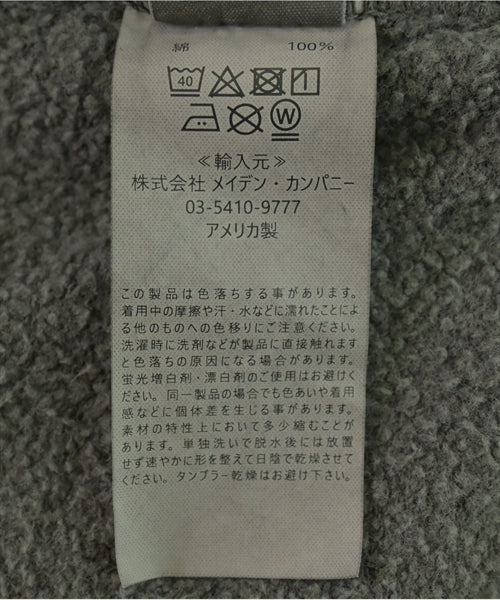 綿 100%
40
W
≪輸入元≫
株式会社 メイデン・カンパニー
03-5410-9777
アメリカ製
この製品は色落ちする事があります。
着用中の摩擦や汗・水などに濡れたことによ
る他のものへの色移りにご注意ください。
洗濯時に洗剤などが製品に直接触れます
と色落ちの原因になる場合があります。
蛍光増白剤・漂白剤のご使用はお避けく
ださい。同一製品の場合でも色あいや着用
感などに個体差を生じる事があります。
素材の特性上において多少縮むことが
あります。単独洗いで脱水後には放置
せず速やかに形を整えて日陰で乾燥させて
ください。タンブラー乾燥はお避け下さい。